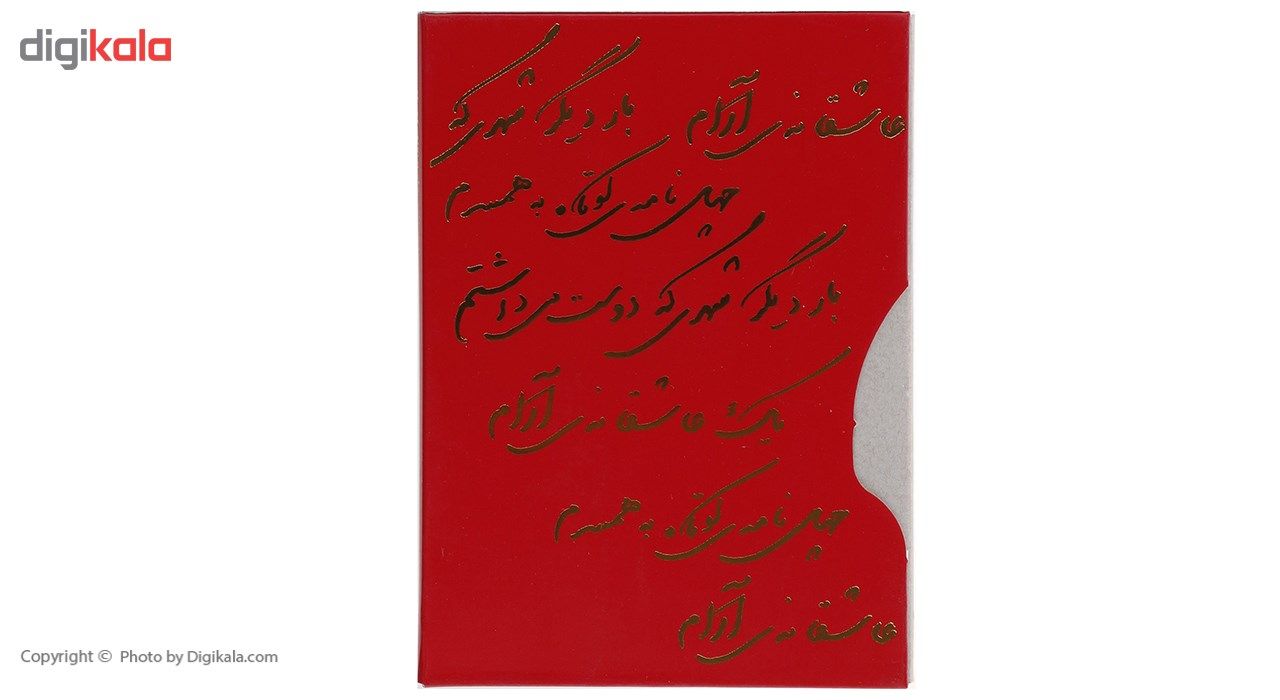 digikala
عاشقانه‌ی آرام بار دیگر شهری که
چهل نامه‌ی کوتاه به همسرم
بار دیگر شهری که دوست می داشتم
یک عاشقانه‌ی آرام
چهل نامه‌ی کوتاه به همسرم
عاشقانه‌ی آرام
Copyright © Photo by Digikala.com